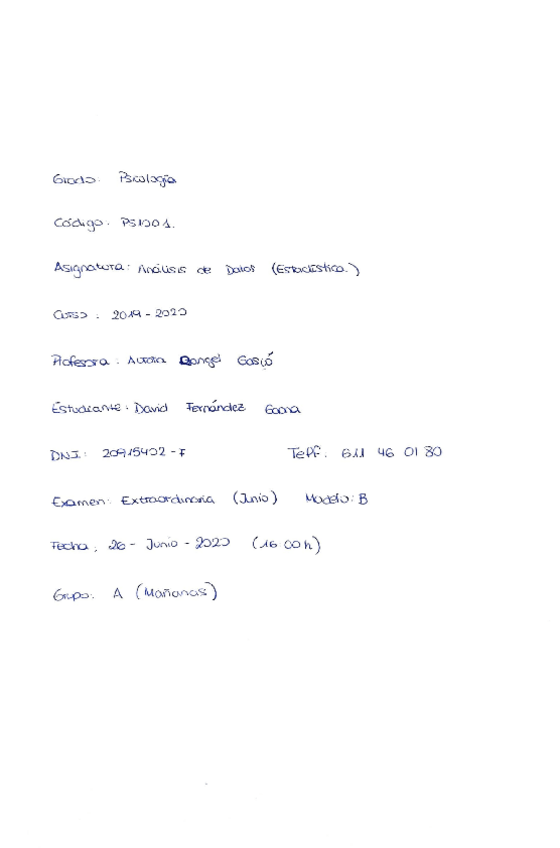 Grado: Psicología
Código: PS1001.
Asignatura: Análisis de Datos (Estadística.)
Curso: 2019-2020
Profesora: Aurora Rangel Gascó
Estudiante: David Fernández
DNI: 20915402-F Telf: 611 46 01 80
Examen: Extraordinaria (Junio) Modelo: B
Fecha: 26-Junio-2020 (16 00 h)
Grupo: A (Mañanas)